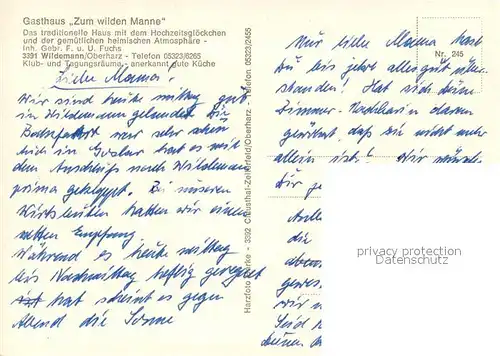 Gasthaus „Zum wilden Manne"
Das traditionelle Haus mit dem Hochzeitsglöckchen
und der gemütlichen heimischen Atmosphäre -
Inh. Gebr. F. u. U. Fuchs
3391 Wildemann/Oberharz - Telefon 05323/6265
Klub- und Tagungsräume, anerkannt gute Küche
Liebe Mama!
Wir sind heute mittag gut
in Wildemann gelandet. Die
Bahnfahrt war sehr schön
Auch in Goslar hat es mit
dem Anschluß nach Wildemann
prima geklappt. Bei unseren
Wirtsleuten hatten wir einen
netten Empfang
Während es heute mittag
bis Nachmittag heftig geregnet
hat scheint es gegen
Abend die Sonne
Harzfoto - 3392 Clausthal-Zellerfeld/Oberharz, Telefon 05323/2455
Nr. 245
Nur liebe Mama hast
Du bis jetzt alles gut über-
standen! Hat sich Deine
Zimmer-Nachbarin daran
gewöhnt daß Du nicht mehr
allein ist! Wir
Dir
die
wir
Seid
privacy protection
Datenschutz